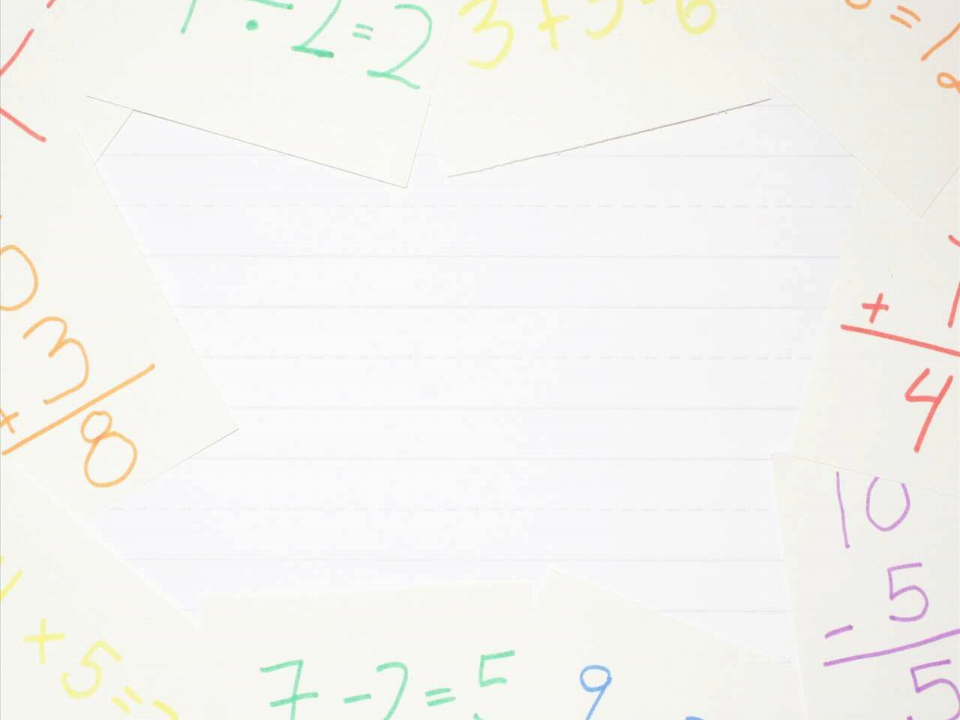 ÷ 2 = 2
3 + 3 = 6
=
3
+
8
+ 1
4
10
- 5
5
+ 5 =
7 - 2 = 5
9